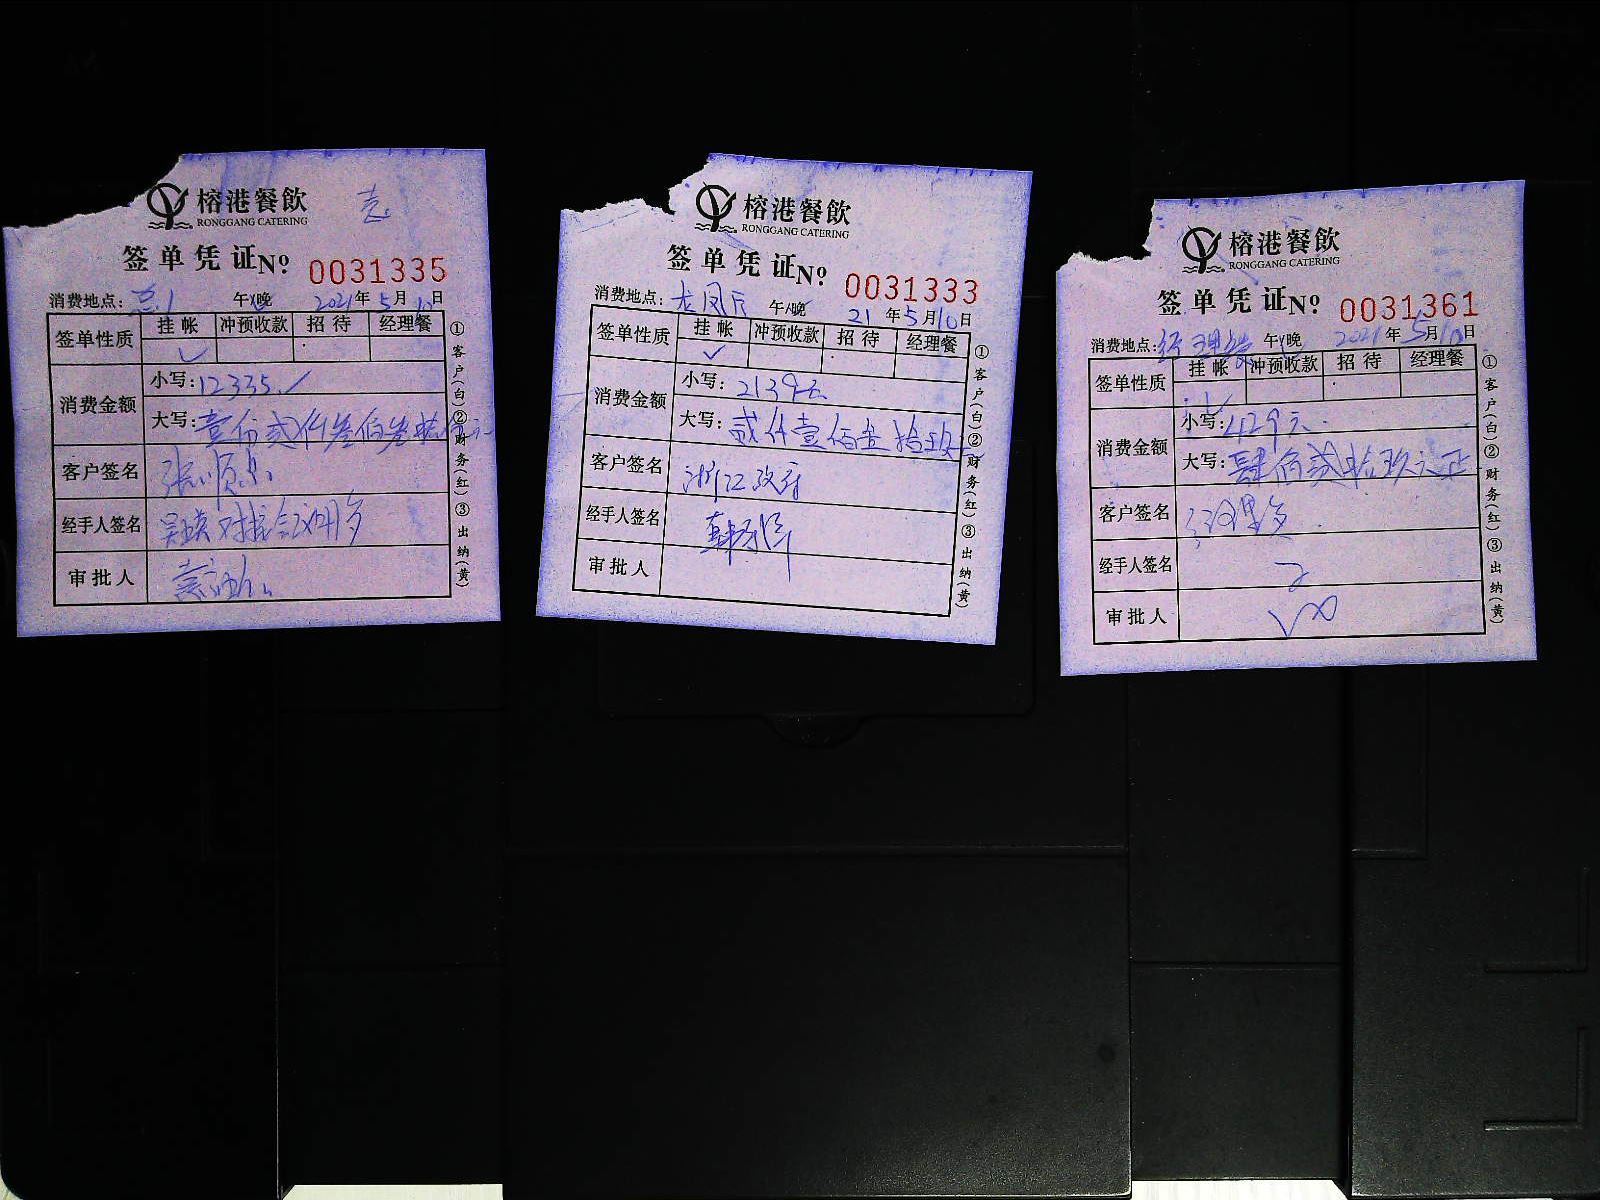 榕港餐飲
RONGGANG CATERING
签单凭证№ 0031335
消费地点: 午/晚 2021年5月10日
签单性质 挂帐 冲预收款 招待 经理餐
✓
消费金额
小写:12335.
大写:壹万贰仟叁佰叁拾伍元
客户签名
经手人签名
审批人
①客户(白)②财务(红)③出纳(黄)
榕港餐飲
RONGGANG CATERING
签单凭证№ 0031333
消费地点:龙凤厅 午/晚 21年5月10日
签单性质 挂帐 冲预收款 招待 经理餐
✓
消费金额
小写:2139元
大写:贰仟壹佰叁拾玖元
客户签名 浙江政府
经手人签名
审批人
①客户(白)②财务(红)③出纳(黄)
榕港餐飲
RONGGANG CATERING
签单凭证№ 0031361
消费地点: 午/晚 2021年5月10日
签单性质 挂帐 冲预收款 招待 经理餐
✓
消费金额
小写:429元
大写:肆佰贰拾玖元正
客户签名
经手人签名
审批人
①客户(白)②财务(红)③出纳(黄)